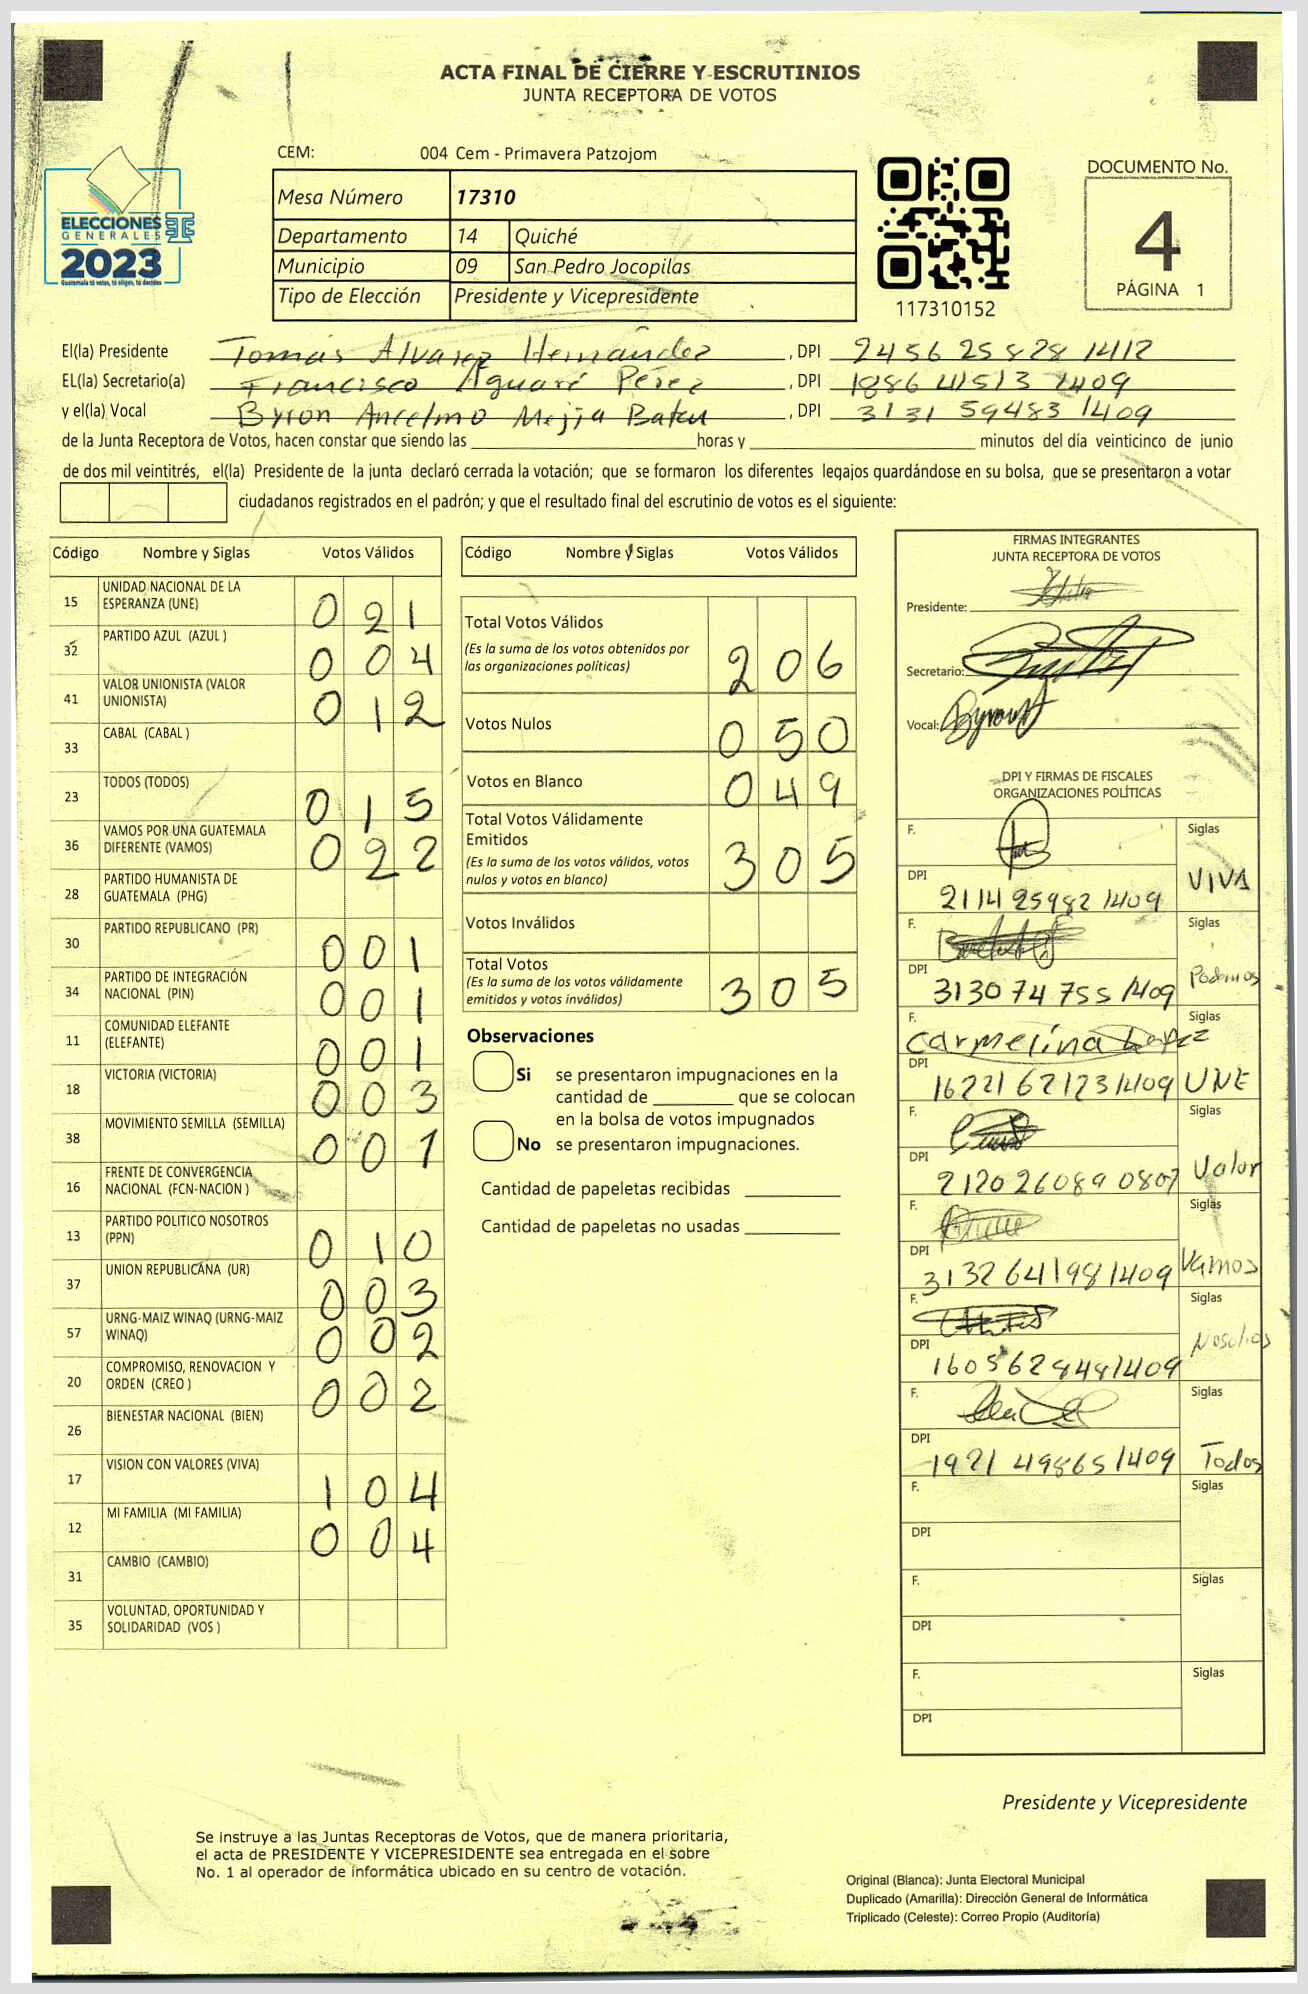 ACTA FINAL DE CIERRE Y ESCRUTINIOS
JUNTA RECEPTORA DE VOTOS
CEM: 004 Cem - Primavera Patzojom
ELECCIONES
GENERALES
2023
Guatemala tú votas, tú eliges, tú decides
Mesa Número 17310
Departamento 14 Quiché
Municipio 09 San Pedro Jocopilas
Tipo de Elección Presidente y Vicepresidente
117310152
DOCUMENTO No.
4
PÁGINA 1
El(la) Presidente Tomás Alvarez Hernández , DPI 2456 25828 1412
EL(la) Secretario(a) Francisco Aguaré Pérez , DPI 1886 41513 1409
y el(la) Vocal Byron Ancelmo Mejía Baten , DPI 3131 59483 1409
de la Junta Receptora de Votos, hacen constar que siendo las horas y minutos del día veinticinco de junio
de dos mil veintitrés, el(la) Presidente de la junta declaró cerrada la votación; que se formaron los diferentes legajos guardándose en su bolsa, que se presentaron a votar
ciudadanos registrados en el padrón; y que el resultado final del escrutinio de votos es el siguiente:
Código Nombre y Siglas Votos Válidos
15 UNIDAD NACIONAL DE LA
ESPERANZA (UNE) 0 2 1
32 PARTIDO AZUL (AZUL ) 0 0 4
41 VALOR UNIONISTA (VALOR
UNIONISTA) 0 1 2
33 CABAL (CABAL )
23 TODOS (TODOS) 0 1 5
36 VAMOS POR UNA GUATEMALA
DIFERENTE (VAMOS) 0 2 2
28 PARTIDO HUMANISTA DE
GUATEMALA (PHG)
30 PARTIDO REPUBLICANO (PR) 0 0 1
34 PARTIDO DE INTEGRACIÓN
NACIONAL (PIN) 0 0 1
11 COMUNIDAD ELEFANTE
(ELEFANTE) 0 0 1
18 VICTORIA (VICTORIA) 0 0 3
38 MOVIMIENTO SEMILLA (SEMILLA) 0 0 1
16 FRENTE DE CONVERGENCIA
NACIONAL (FCN-NACION )
13 PARTIDO POLITICO NOSOTROS
(PPN) 0 1 0
37 UNION REPUBLICANA (UR) 0 0 3
57 URNG-MAIZ WINAQ (URNG-MAIZ
WINAQ) 0 0 2
20 COMPROMISO, RENOVACION Y
ORDEN (CREO ) 0 0 2
26 BIENESTAR NACIONAL (BIEN)
17 VISION CON VALORES (VIVA) 1 0 4
12 MI FAMILIA (MI FAMILIA) 0 0 4
31 CAMBIO (CAMBIO)
35 VOLUNTAD, OPORTUNIDAD Y
SOLIDARIDAD (VOS )
Código Nombre y Siglas Votos Válidos
Total Votos Válidos
(Es la suma de los votos obtenidos por
las organizaciones políticas) 2 0 6
Votos Nulos 0 5 0
Votos en Blanco 0 4 9
Total Votos Válidamente
Emitidos
(Es la suma de los votos válidos, votos
nulos y votos en blanco) 3 0 5
Votos Inválidos
Total Votos
(Es la suma de los votos válidamente
emitidos y votos inválidos) 3 0 5
Observaciones
Si se presentaron impugnaciones en la
cantidad de que se colocan
en la bolsa de votos impugnados
No se presentaron impugnaciones.
Cantidad de papeletas recibidas
Cantidad de papeletas no usadas
FIRMAS INTEGRANTES
JUNTA RECEPTORA DE VOTOS
Presidente:
Secretario:
Vocal:
DPI Y FIRMAS DE FISCALES
ORGANIZACIONES POLÍTICAS
F. Siglas
DPI 2114 25982 1409 VIVA
F. Siglas
DPI 3130 74 755 1409 Podemos
F. Carmelina Lopez Siglas
DPI 1622 1 62123 1409 UNE
F. Siglas
DPI 2120 26089 0807 Valor
F. Siglas
DPI 3132 64198 1409 Vamos
F. Siglas
DPI 1605 62848 1409 Nosotros
F. Siglas
DPI 1921 49865 1409 Todos
F. Siglas
DPI
F. Siglas
DPI
F. Siglas
DPI
Presidente y Vicepresidente
Se instruye a las Juntas Receptoras de Votos, que de manera prioritaria,
el acta de PRESIDENTE Y VICEPRESIDENTE sea entregada en el sobre
No. 1 al operador de informática ubicado en su centro de votación.
Original (Blanca): Junta Electoral Municipal
Duplicado (Amarilla): Dirección General de Informática
Triplicado (Celeste): Correo Propio (Auditoría)